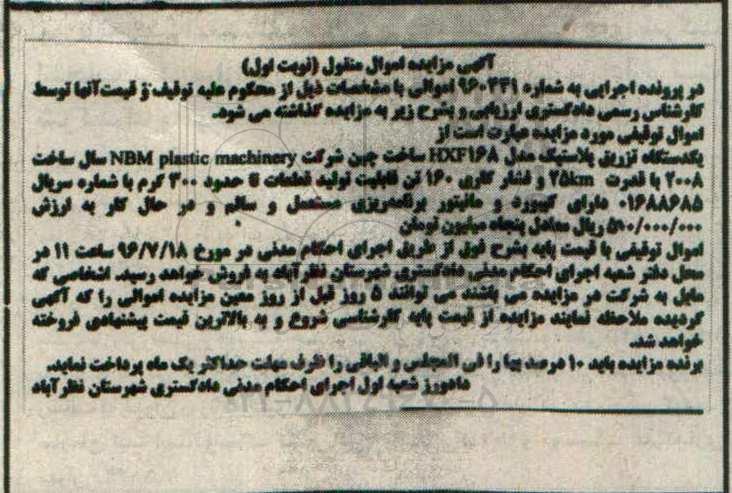 آگهی مزایده اموال منقول (نوبت اول)
در پرونده اجرایی به شماره ۹۶۰۳۳۱ اموالی با مشخصات ذیل از محکوم علیه توقیف و قیمت آنها توسط
کارشناس رسمی دادگستری ارزیابی و بشرح زیر به مزایده گذاشته می شود.
اموال توقیفی مورد مزایده عبارت است از
یکدستگاه تزریق پلاستیک مدل HXF۱۶۸ ساخت چین شرکت NBM plastic machinery سال ساخت
۲۰۰۸ با قدرت ۲۵km و فشار گازی ۱۶۰ تن قابلیت تولید قطعات تا حدود ۳۰۰ گرم با شماره سریال
۰۱۶۸۸۶۸۵ دارای کیبورد و مانیتور برنامه‌ریزی مستعمل و سالم و در حال کار به ارزش
۵۰۰/۰۰۰/۰۰۰ ریال معادل پنجاه میلیون تومان
اموال توقیفی با قیمت پایه بشرح فوق از طریق اجرای احکام مدنی در مورخ ۹۶/۷/۱۸ ساعت ۱۱ در
محل دفتر شعبه اجرای احکام مدنی دادگستری شهرستان نظرآباد به فروش خواهد رسید. اشخاصی که
مایل به شرکت در مزایده می باشند می توانند ۵ روز قبل از روز معین مزایده اموالی را که آگهی
گردیده ملاحظه نمایند مزایده از قیمت پایه کارشناسی شروع و به بالاترین قیمت پیشنهادی فروخته
خواهد شد.
برنده مزایده باید ۱۰ درصد بها را فی المجلس و الباقی را ظرف مهلت حداکثر یک ماه پرداخت نماید.
دادورز شعبه اول اجرای احکام مدنی دادگستری شهرستان نظرآباد